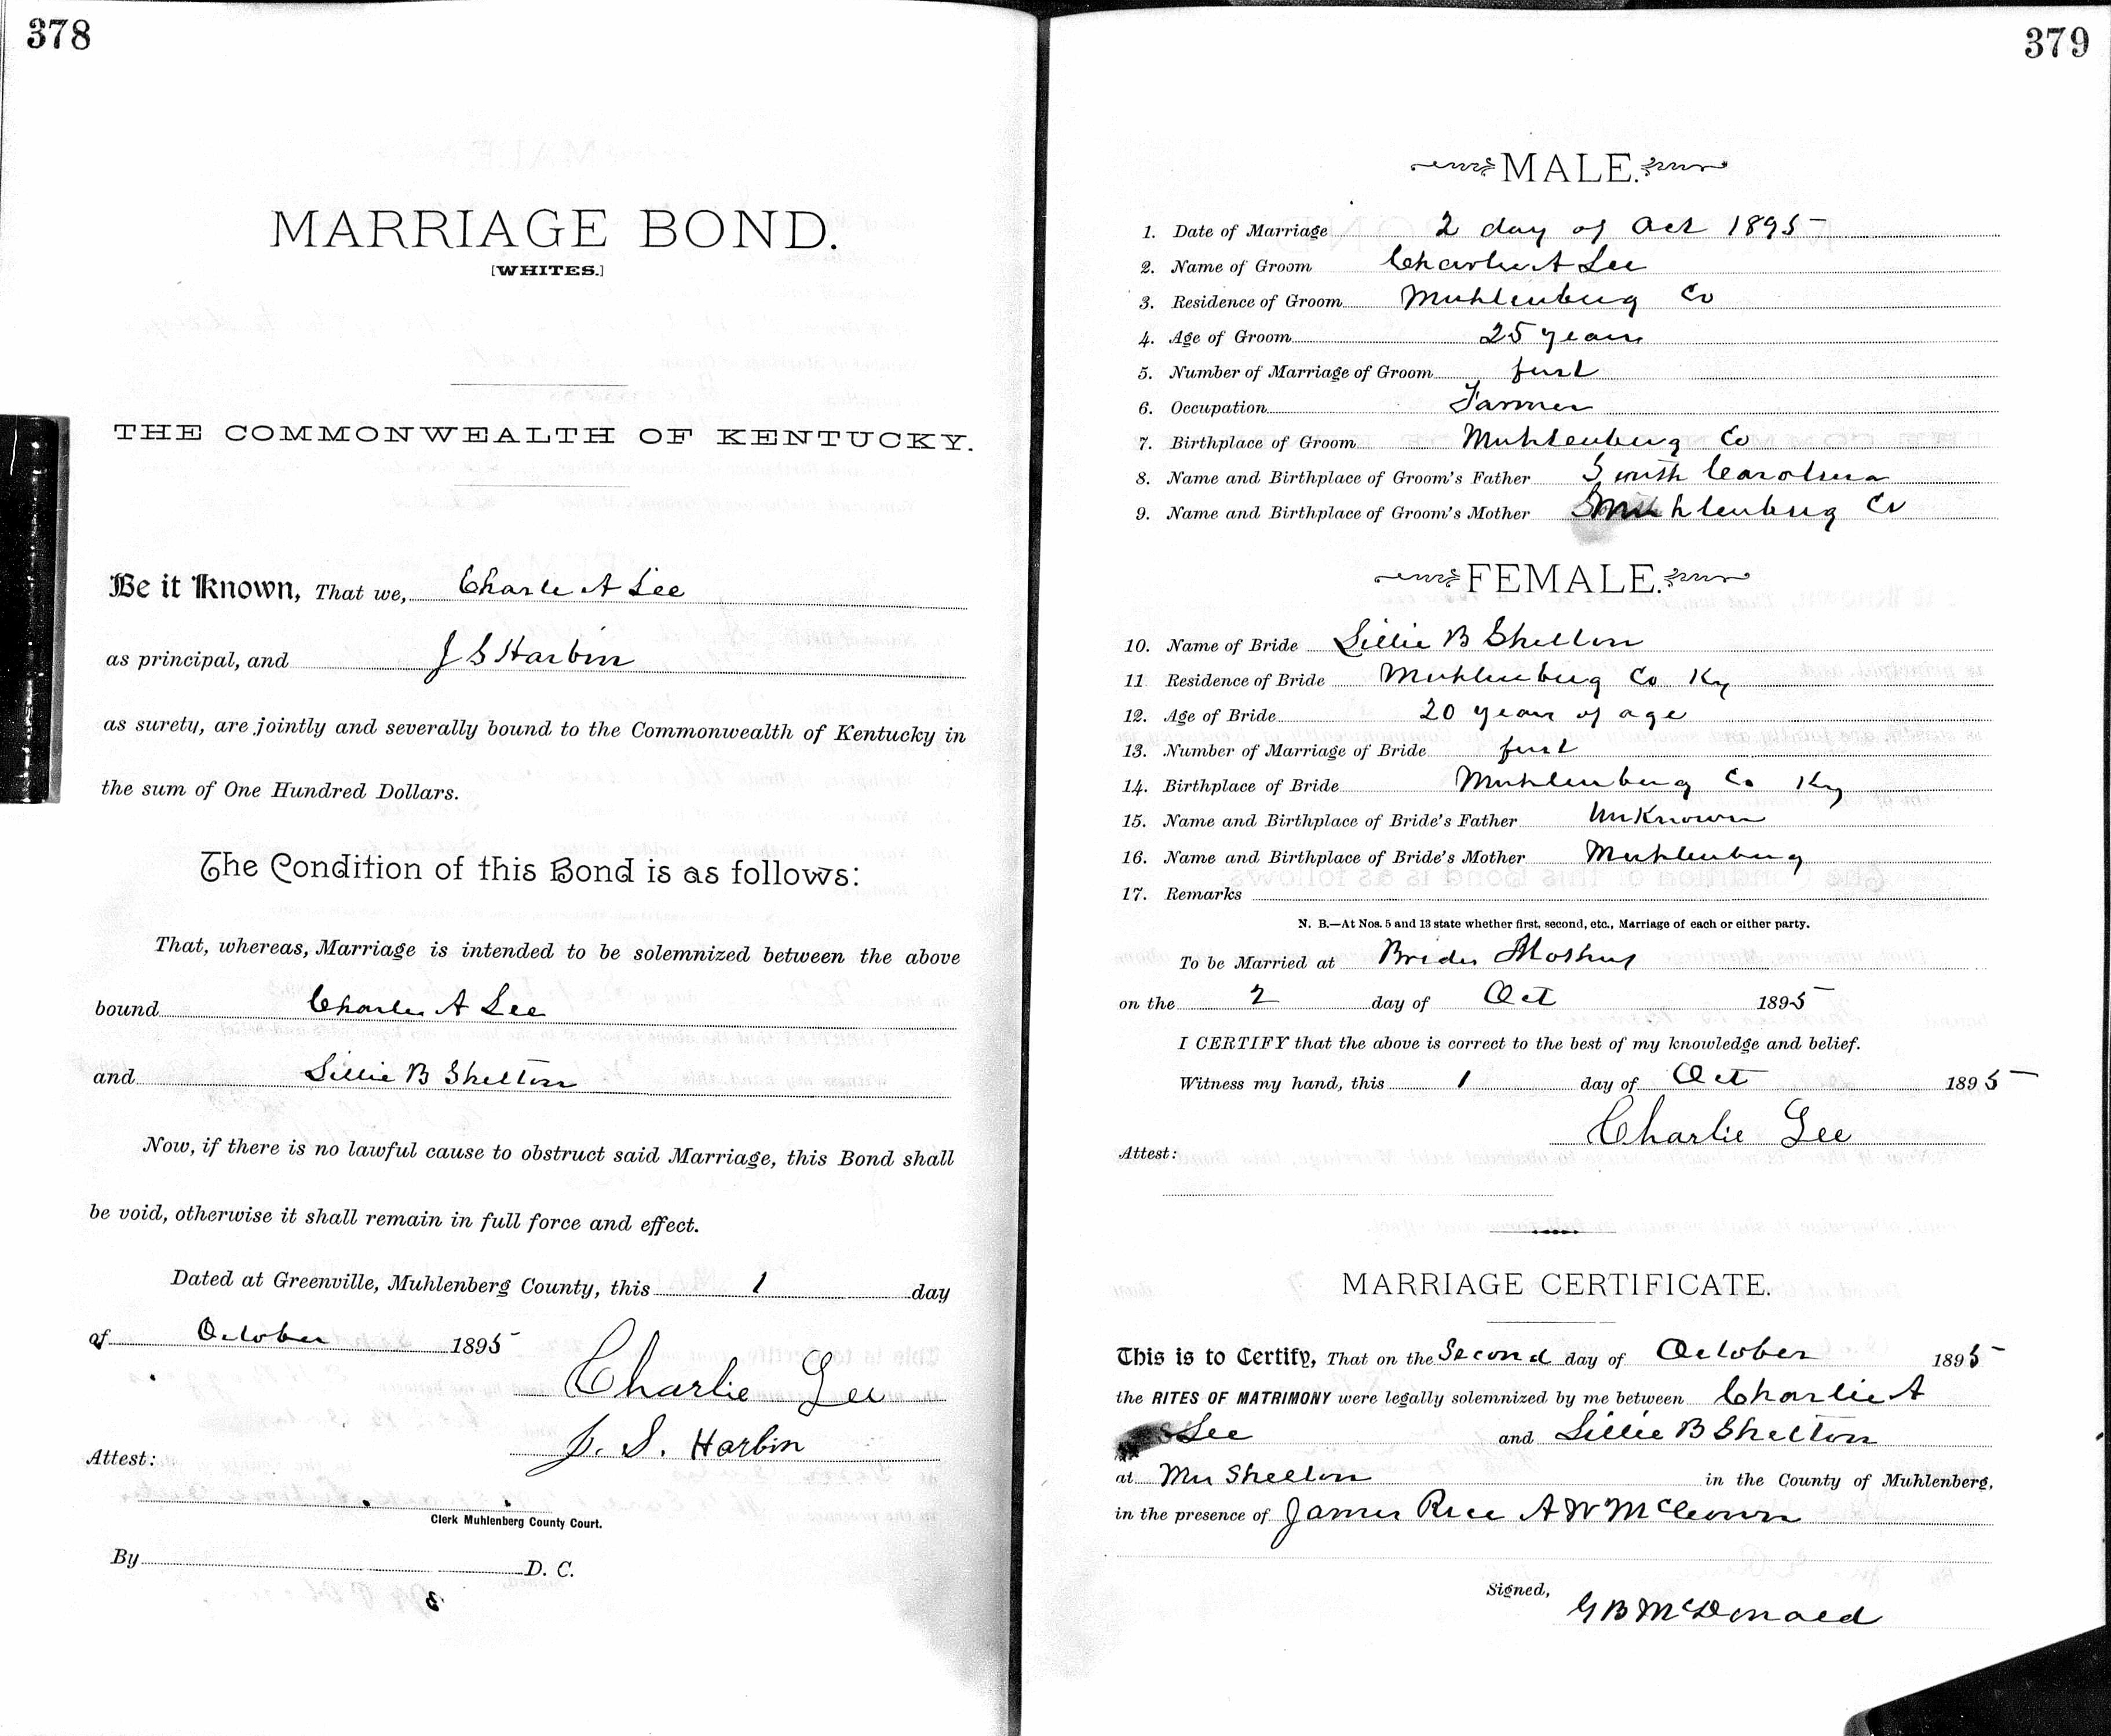 378
MARRIAGE BOND.
[WHITES.]
THE COMMONWEALTH OF KENTUCKY.
Be it Known, That we, Charle A Lee
as principal, and J S Harbin
as surety, are jointly and severally bound to the Commonwealth of Kentucky in
the sum of One Hundred Dollars.
The Condition of this Bond is as follows:
That, whereas, Marriage is intended to be solemnized between the above
bound Charles A Lee
and Lillie B Shelton
Now, if there is no lawful cause to obstruct said Marriage, this Bond shall
be void, otherwise it shall remain in full force and effect.
Dated at Greenville, Muhlenberg County, this 1 day
of October 1895
Charlie Lee
J. S. Harbin
Attest:
Clerk Muhlenberg County Court.
By D. C.
379
MALE.
1. Date of Marriage 2 day of Oct 1895
2. Name of Groom Charlie A Lee
3. Residence of Groom Muhlenburg Co
4. Age of Groom 25 years
5. Number of Marriage of Groom first
6. Occupation Farmer
7. Birthplace of Groom Muhlenburg Co
8. Name and Birthplace of Groom's Father South Carolina
9. Name and Birthplace of Groom's Mother Muhlenburg Co
FEMALE.
10. Name of Bride Lillie B Shelton
11 Residence of Bride Muhlenburg Co Ky
12. Age of Bride 20 years of age
13. Number of Marriage of Bride first
14. Birthplace of Bride Muhlenburg Co Ky
15. Name and Birthplace of Bride's Father UnKnown
16. Name and Birthplace of Bride's Mother Muhlenburg
17. Remarks
N. B.—At Nos. 5 and 13 state whether first, second, etc., Marriage of each or either party.
To be Married at Brides Mothers
on the 2 day of Oct 1895
I CERTIFY that the above is correct to the best of my knowledge and belief.
Witness my hand, this 1 day of Oct 1895
Charlie Lee
Attest:
MARRIAGE CERTIFICATE.
This is to Certify, That on the Second day of October 1895
the RITES OF MATRIMONY were legally solemnized by me between Charlie A
Lee and Lillie B Shelton
at Mrs Shelton in the County of Muhlenberg,
in the presence of James Rice A W McCown
Signed,
G B McDonald